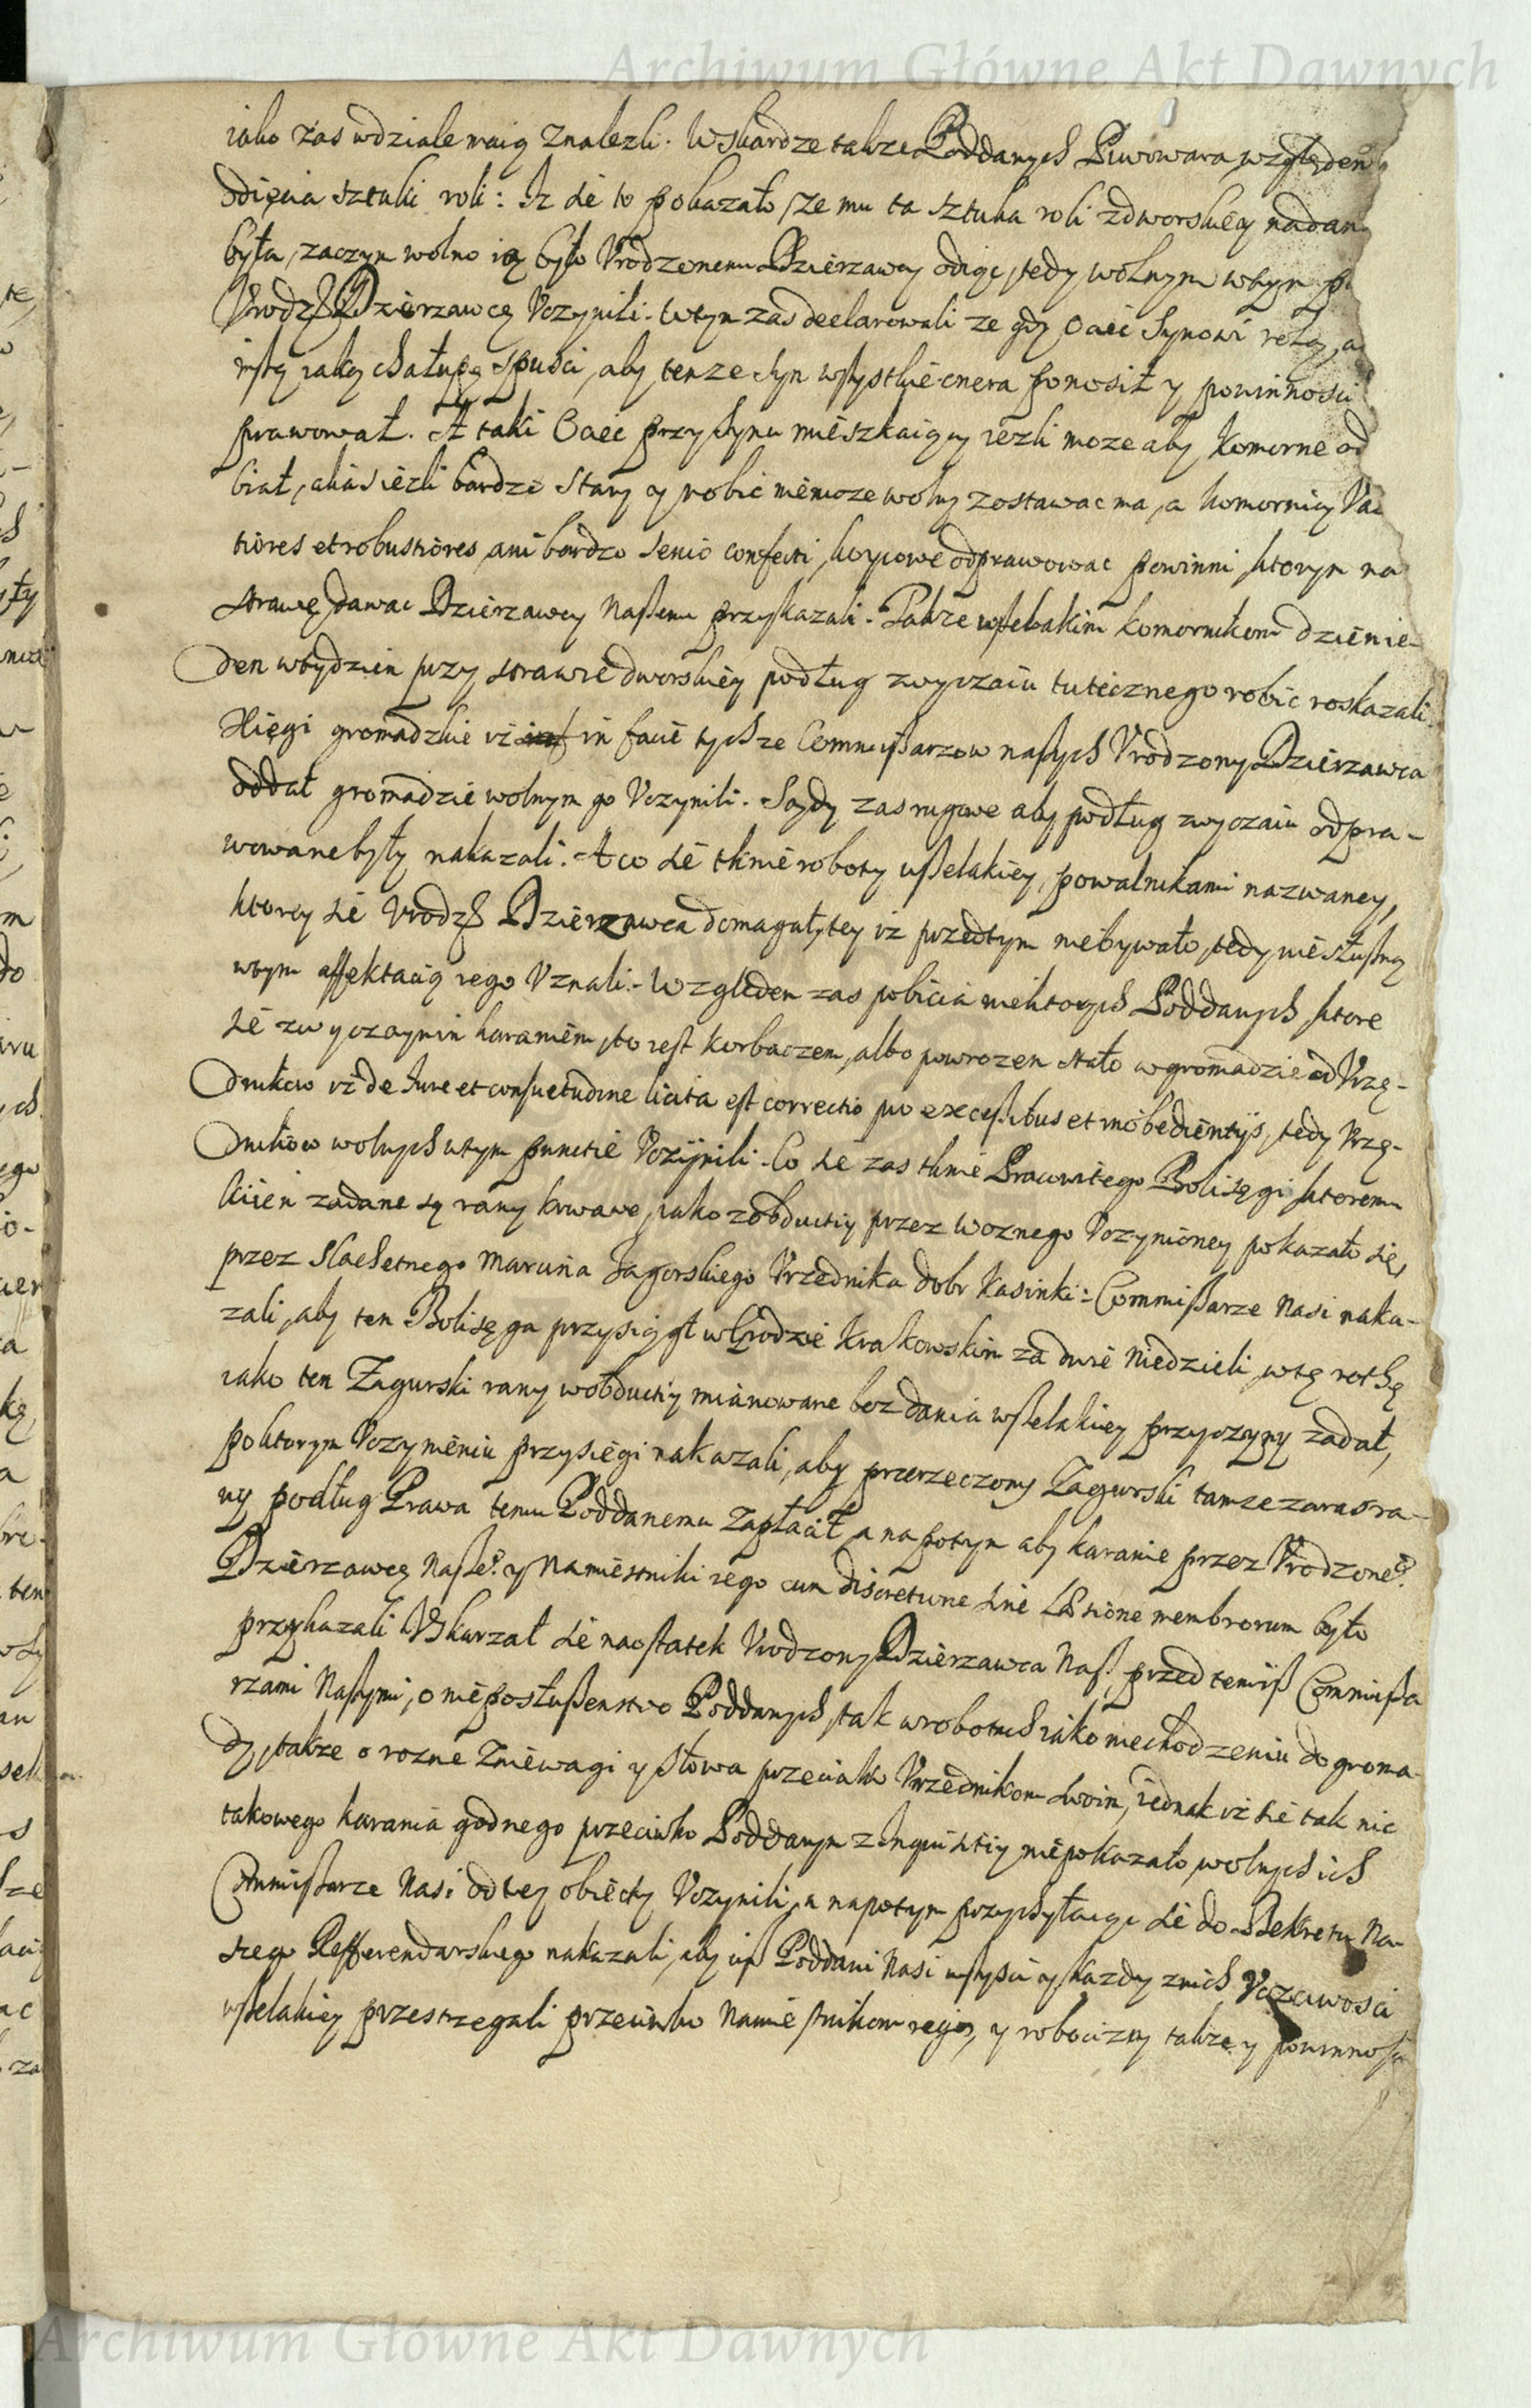 Archiwum Główne Akt Dawnych
iako zas wdziale maią Znalezli. W skardze takze Poddanych Piwowara względem
odięcia sztuki roli: Iz sie to pokazało, ze mu ta sztuka roli zdworskiey nadana
była, zaczym wolno ią było Vrodzonemu Dzierzawcy odiąc, tedy wolnym wtym
Vrodz. Dzierzawcę Vczynili. wtym zas declarowali ze gdy Ociec Synowi rolą, a
iaką chałupę spusci, aby tenze Syn wszystkie onera ponosił y powinnosci
prawował. A taki Ociec przy Synu mieszkaiący iezli moze aby komorne od
biał, alias iezli bardzo stary y robic niemoze wolny zostawac ma, a komornicy
tiores et robustiores, ani bardzo senio confecti, korcowe odprawowac powinni, ktorym na
strawę dawac Dzierzawcy Naszemu przykazali. Takze wszelakim komornikom dzien ie-
den wtydzien przy strawie dworskiey podług zwyczaiu tutecznego robic roskazali.
Xięgi gromadzkie iz in facie tychze Commissarzow naszych Vrodzony Dzierzawca
oddał gromadzie wolnym go Vczynili. Sądy zas rugowe aby podług zwyczaiu odpra-
wowane były nakazali. A co sie tknie roboty wszelakiey, powalnikami nazwaney,
ktorey sie Vrodz. Dzierzawca domagał, tey iz przedtym niebywało, tedy niesłuszną
wtym affektacią iego Vznali. Względem zas pobicia niektorych Poddanych, ktore
sie zwyczaynim karaniem, to iest korbaczem, albo powrozem stało w gromadzie od Vrzę-
dnikow iz de Iure et consuetudine licita est correctio pro excessibus et inobedientijs, tedy Vrzę-
dnikow wolnych wtym punctie Vczynili. Co sie zas tknie Pracowitego Bolisęgi, ktoremu
kiiem zadane są rany krwawe, iako z obductiy przez woznego Vczynioney pokazało się,
przez Slachetnego Marcina Zagorskiego Vrzednika dobr Kasinki: Commissarze Nasi naka-
zali, aby ten Bolisęga przysiągł w Grodzie Krakowskim za dwie Niedzieli, wtę rothę
iako ten Zagurski rany w obductiy mianowane bez dania wszelakiey przyczyny zadał,
po ktorym Vczynieniu przysięgi nakazali, aby przerzeczony Zagurski tamze zaraz ra-
ny podług Prawa temu Poddanemu zapłacił, a napotym aby karanie przez Vrodzone°
Dzierzawcę Nasze° y Namiestniki iego cum discretione sine læsione membrorum było
przykazali. Vskarzał sie naostatek Vrodzony Dzierzawca Nasz, przed temisz Commissa
rzami Naszymi, o nieposłuszenstwo Poddanych, tak w robotach iako niechodzeniu do groma-
dy, takze o rozne Zniewagi y słowa przeciwko Vrzednikom swoim, iednak iz sie tak nic
takowego karania godnego przeciwko Poddanym z Inquisitiy niepokazało, wolnych ich
Commissarze Nasi od tey obiecty Vczynili, a napotym przychylaiąc sie do Dekretu Na-
szego Refferendarskiego nakazali, aby cisz Poddani Nasi wszyscy y kazdy znich Vczciwosci
wszelakiey przestrzegali przeciwko Namiestnikom iego, y robocizny takze y powinnosci
Archiwum Główne Akt Dawnych